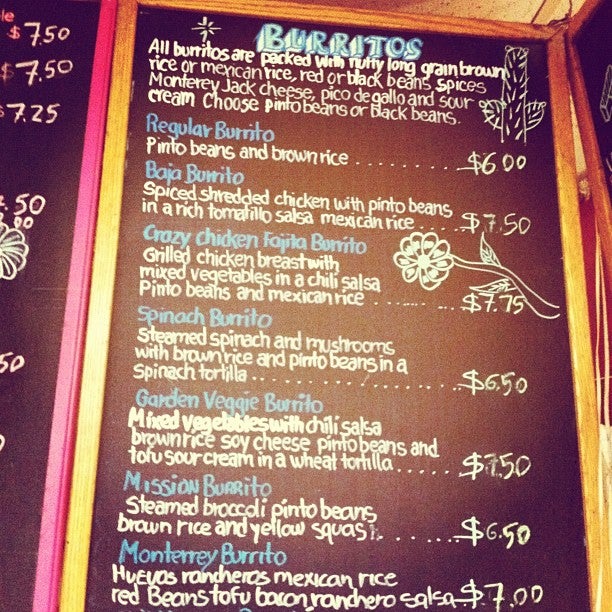 $7.50
$7.50
$7.25
.50
50
BURRITOS
All burritos are packed with nutty long grain brown
rice or mexican rice, red or black beans spices
Monterey Jack cheese, pico de gallo and sour
cream Choose pinto beans or black beans.
Regular Burrito
Pinto beans and brown rice ........... $6.00
Baja Burrito
Spiced shredded chicken with pinto beans
in a rich tomatillo salsa mexican rice ..... $7.50
Crazy chicken Fajita Burrito
Grilled chicken breast with
mixed vegetables in a chili salsa
Pinto beans and mexican rice ......... $7.75
Spinach Burrito
Steamed spinach and mushrooms
with brown rice and pinto beans in a
spinach tortilla .................... $6.50
Garden Veggie Burrito
Mixed vegetables with chili salsa
brown rice soy cheese pinto beans and
tofu sour cream in a wheat tortilla ...... $7.50
Mission Burrito
Steamed broccoli pinto beans
brown rice and yellow squash ....... $6.50
Monterrey Burrito
Huevos rancheros mexican rice
red Beans tofu bacon ranchero salsa $7.00